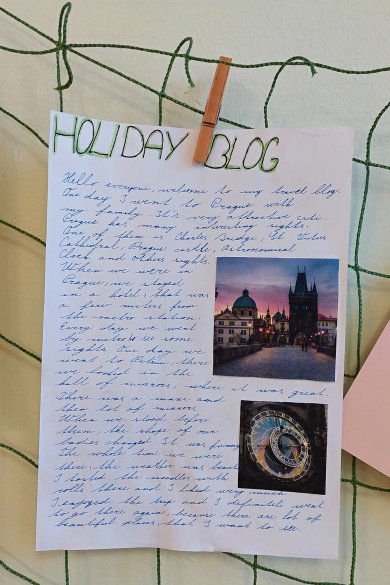 HOLIDAY BLOG
Hello everyone, welcome to my travel blog.
One day I went to Prague with
my family. It's very attractive city.
Prague has many interesting sights.
One of them is Charles Bridge, St Vitus
Cathedral, Prague castle, Astronomical
Clock and other sights.
When we were in
Prague, we stayed
in a hotel, that was
a few meters from
the metro station.
Every day we went
by metro to see some
sights. One day we
went to Petřín, there
we looked in the
hall of mirrors, where it was great.
There was a maze and
then lot of mirrors.
When we stood before
them, the shape of our
bodies changed. It was funny.
The whole time we were
there, the weather was
I tasted the noodles with
there and I liked very much.
I enjoyed the trip and I definitely want
to go there again, because there are lot of
beautiful places, that I want to see.